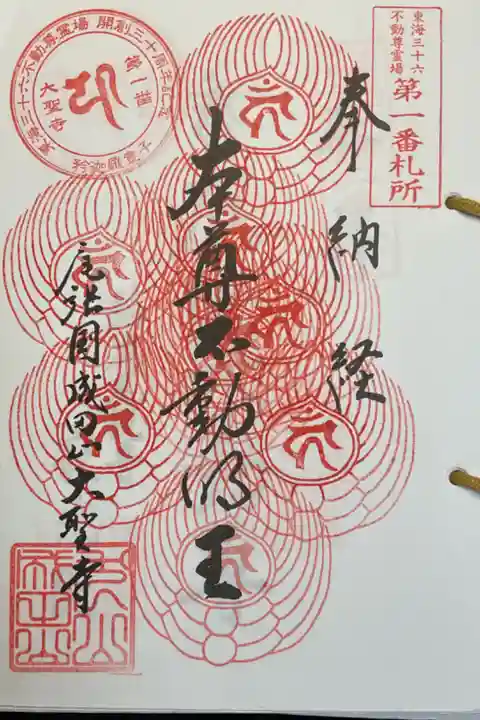 東海三十六
不動尊霊場
第一番札所
奉納経
本尊不動明王
尾張国成田山大聖寺
東海三十六不動尊霊場 開創三十周年記念
第一番
大聖寺
矜羯羅童子